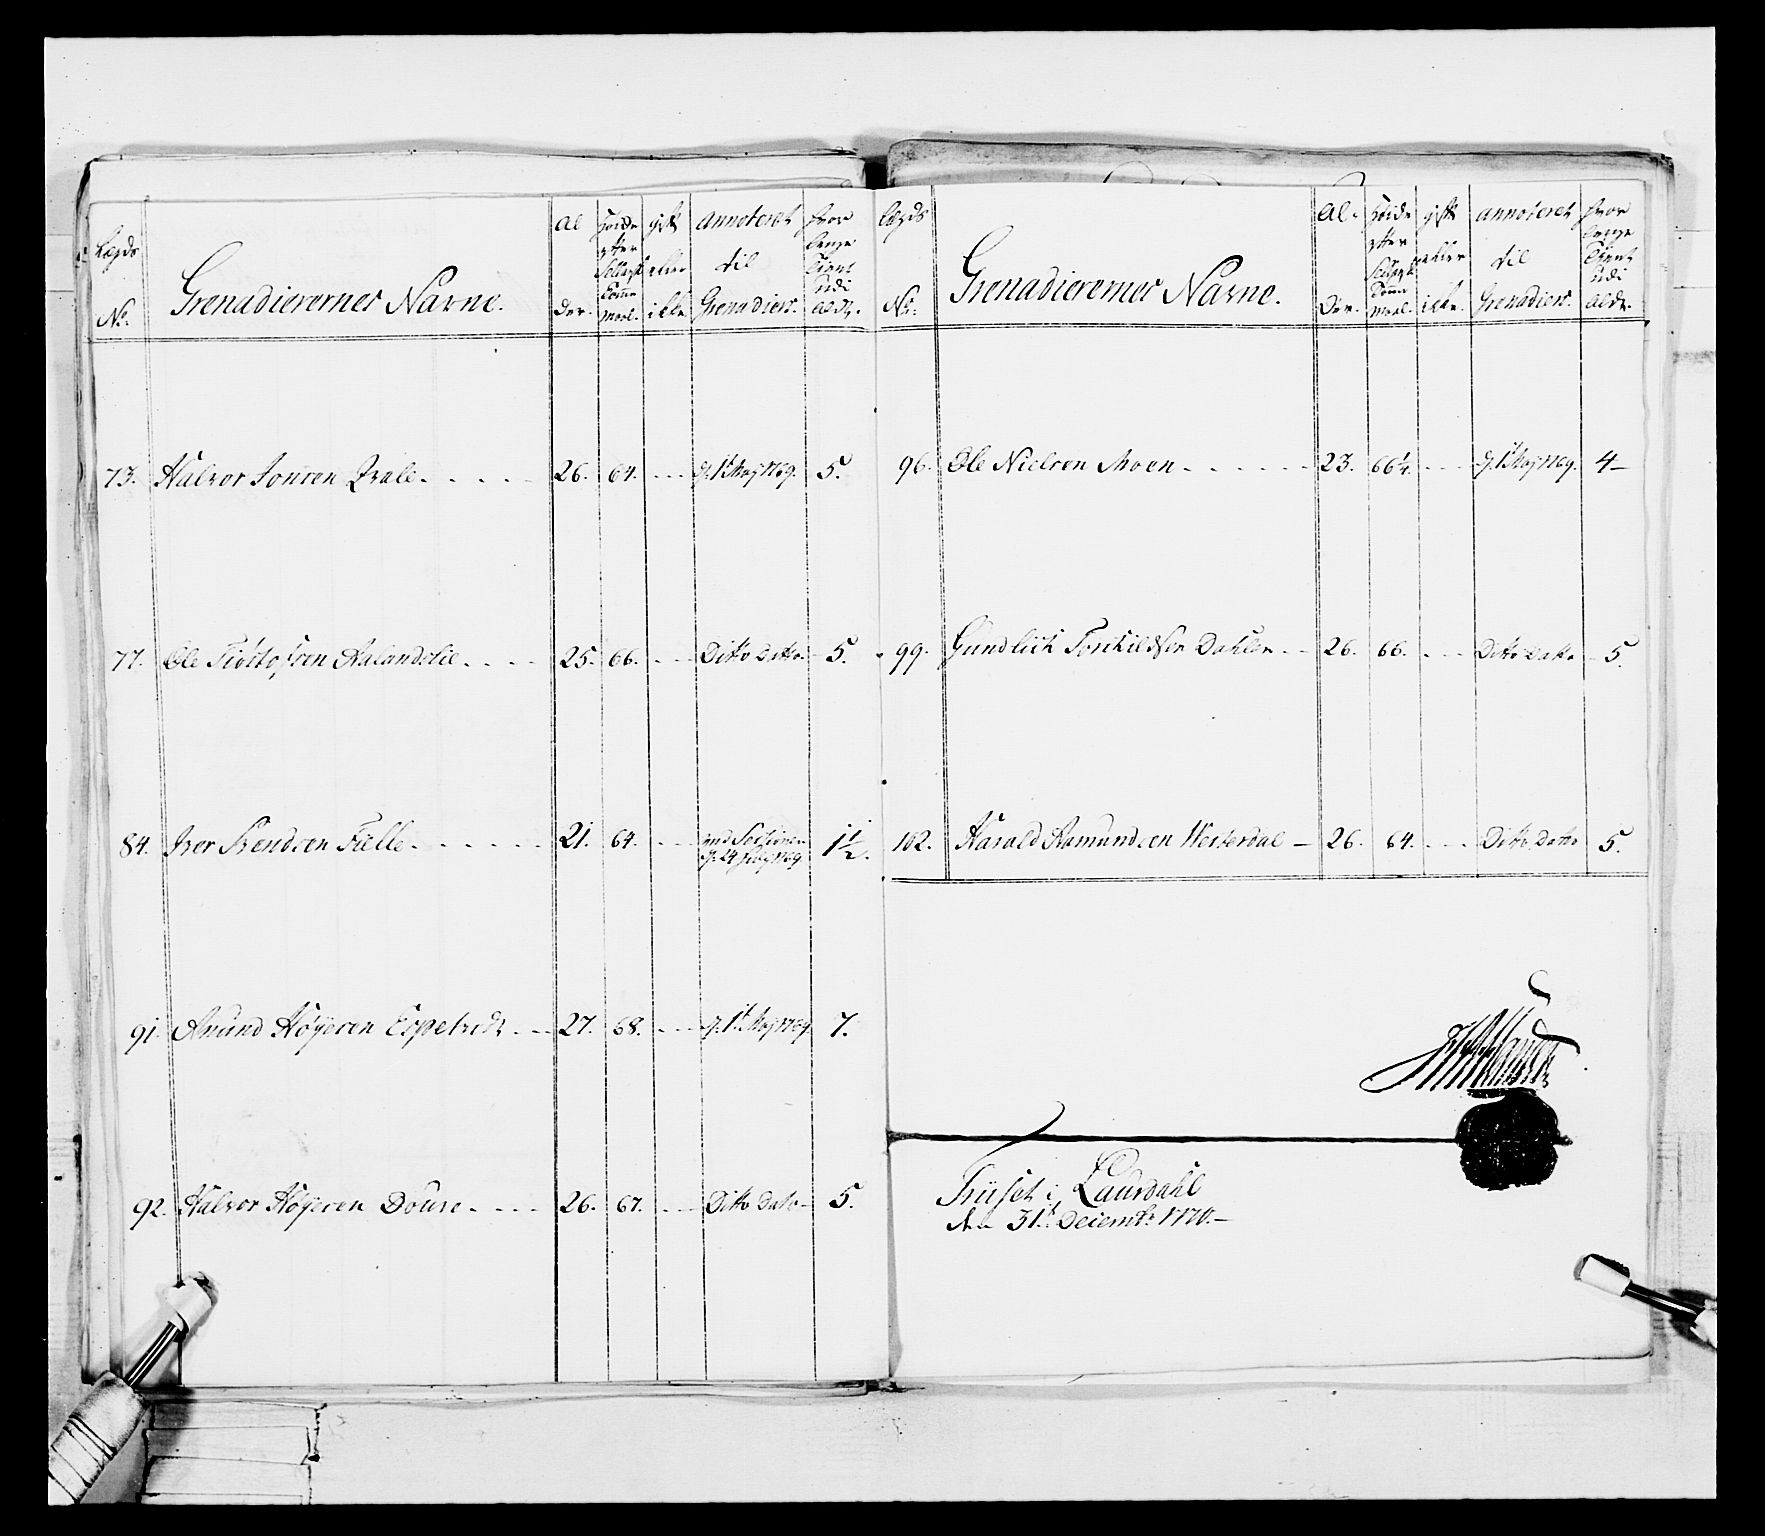 Lægds No:
Grenadierernes Navne.
Al der.
Høide efter Tomme Maal.
gift eller ikke
annoteret til Grenadier.
hvor længe Tient
73. Halvor Jonsen Qvale 26. 64. d. 1t Maj 1769. 5.
77. Ole Alandslie 25. 66. Ditto Dato 5.
84. Iver Svendsen Fielle 21. 64. 1½.
91. Anund Høyesen Espetvedt 27. 68. d. 1t Maj 1769 7.
92. Halvor Høyesen Doure 26. 67. Ditto Dato 5.
Lægds No:
Grenadierernes Navne.
Al. der.
Høide efter Tomme Maal.
gift eller ikke.
annoteret til Grenadier.
hvor længe Tient
96. Ole Nielsen Moen 23. 66¼. d. 1t Maj 1769. 4
99. Gundlich Torkildsen Dahlen 26. 66. Ditto Dato 5.
102. Harald Aamundsen Westerdal 26. 64. Ditto Dato 5.
Triset i Laurdahl
den 31t Decembr 1770.